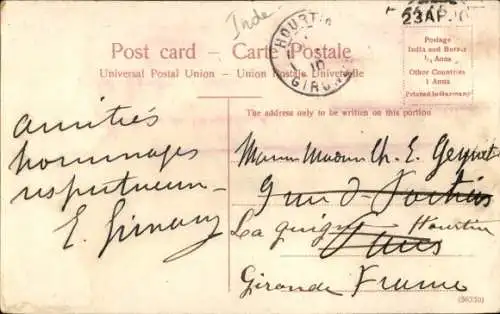 Inde
23 AP 10
Post card – Carte Postale
Universal Postal Union – Union Postale Universelle
HOURTIN
10
GIRONDE
Postage
India and Burma
½ Anna
Other Countries
1 Anna
Printed in Germany
The address only to be written on this portion
amitiés
hommages
respectueux
E.
Ch. E.
9 rue d
La Hourtin
Paris
Gironde France